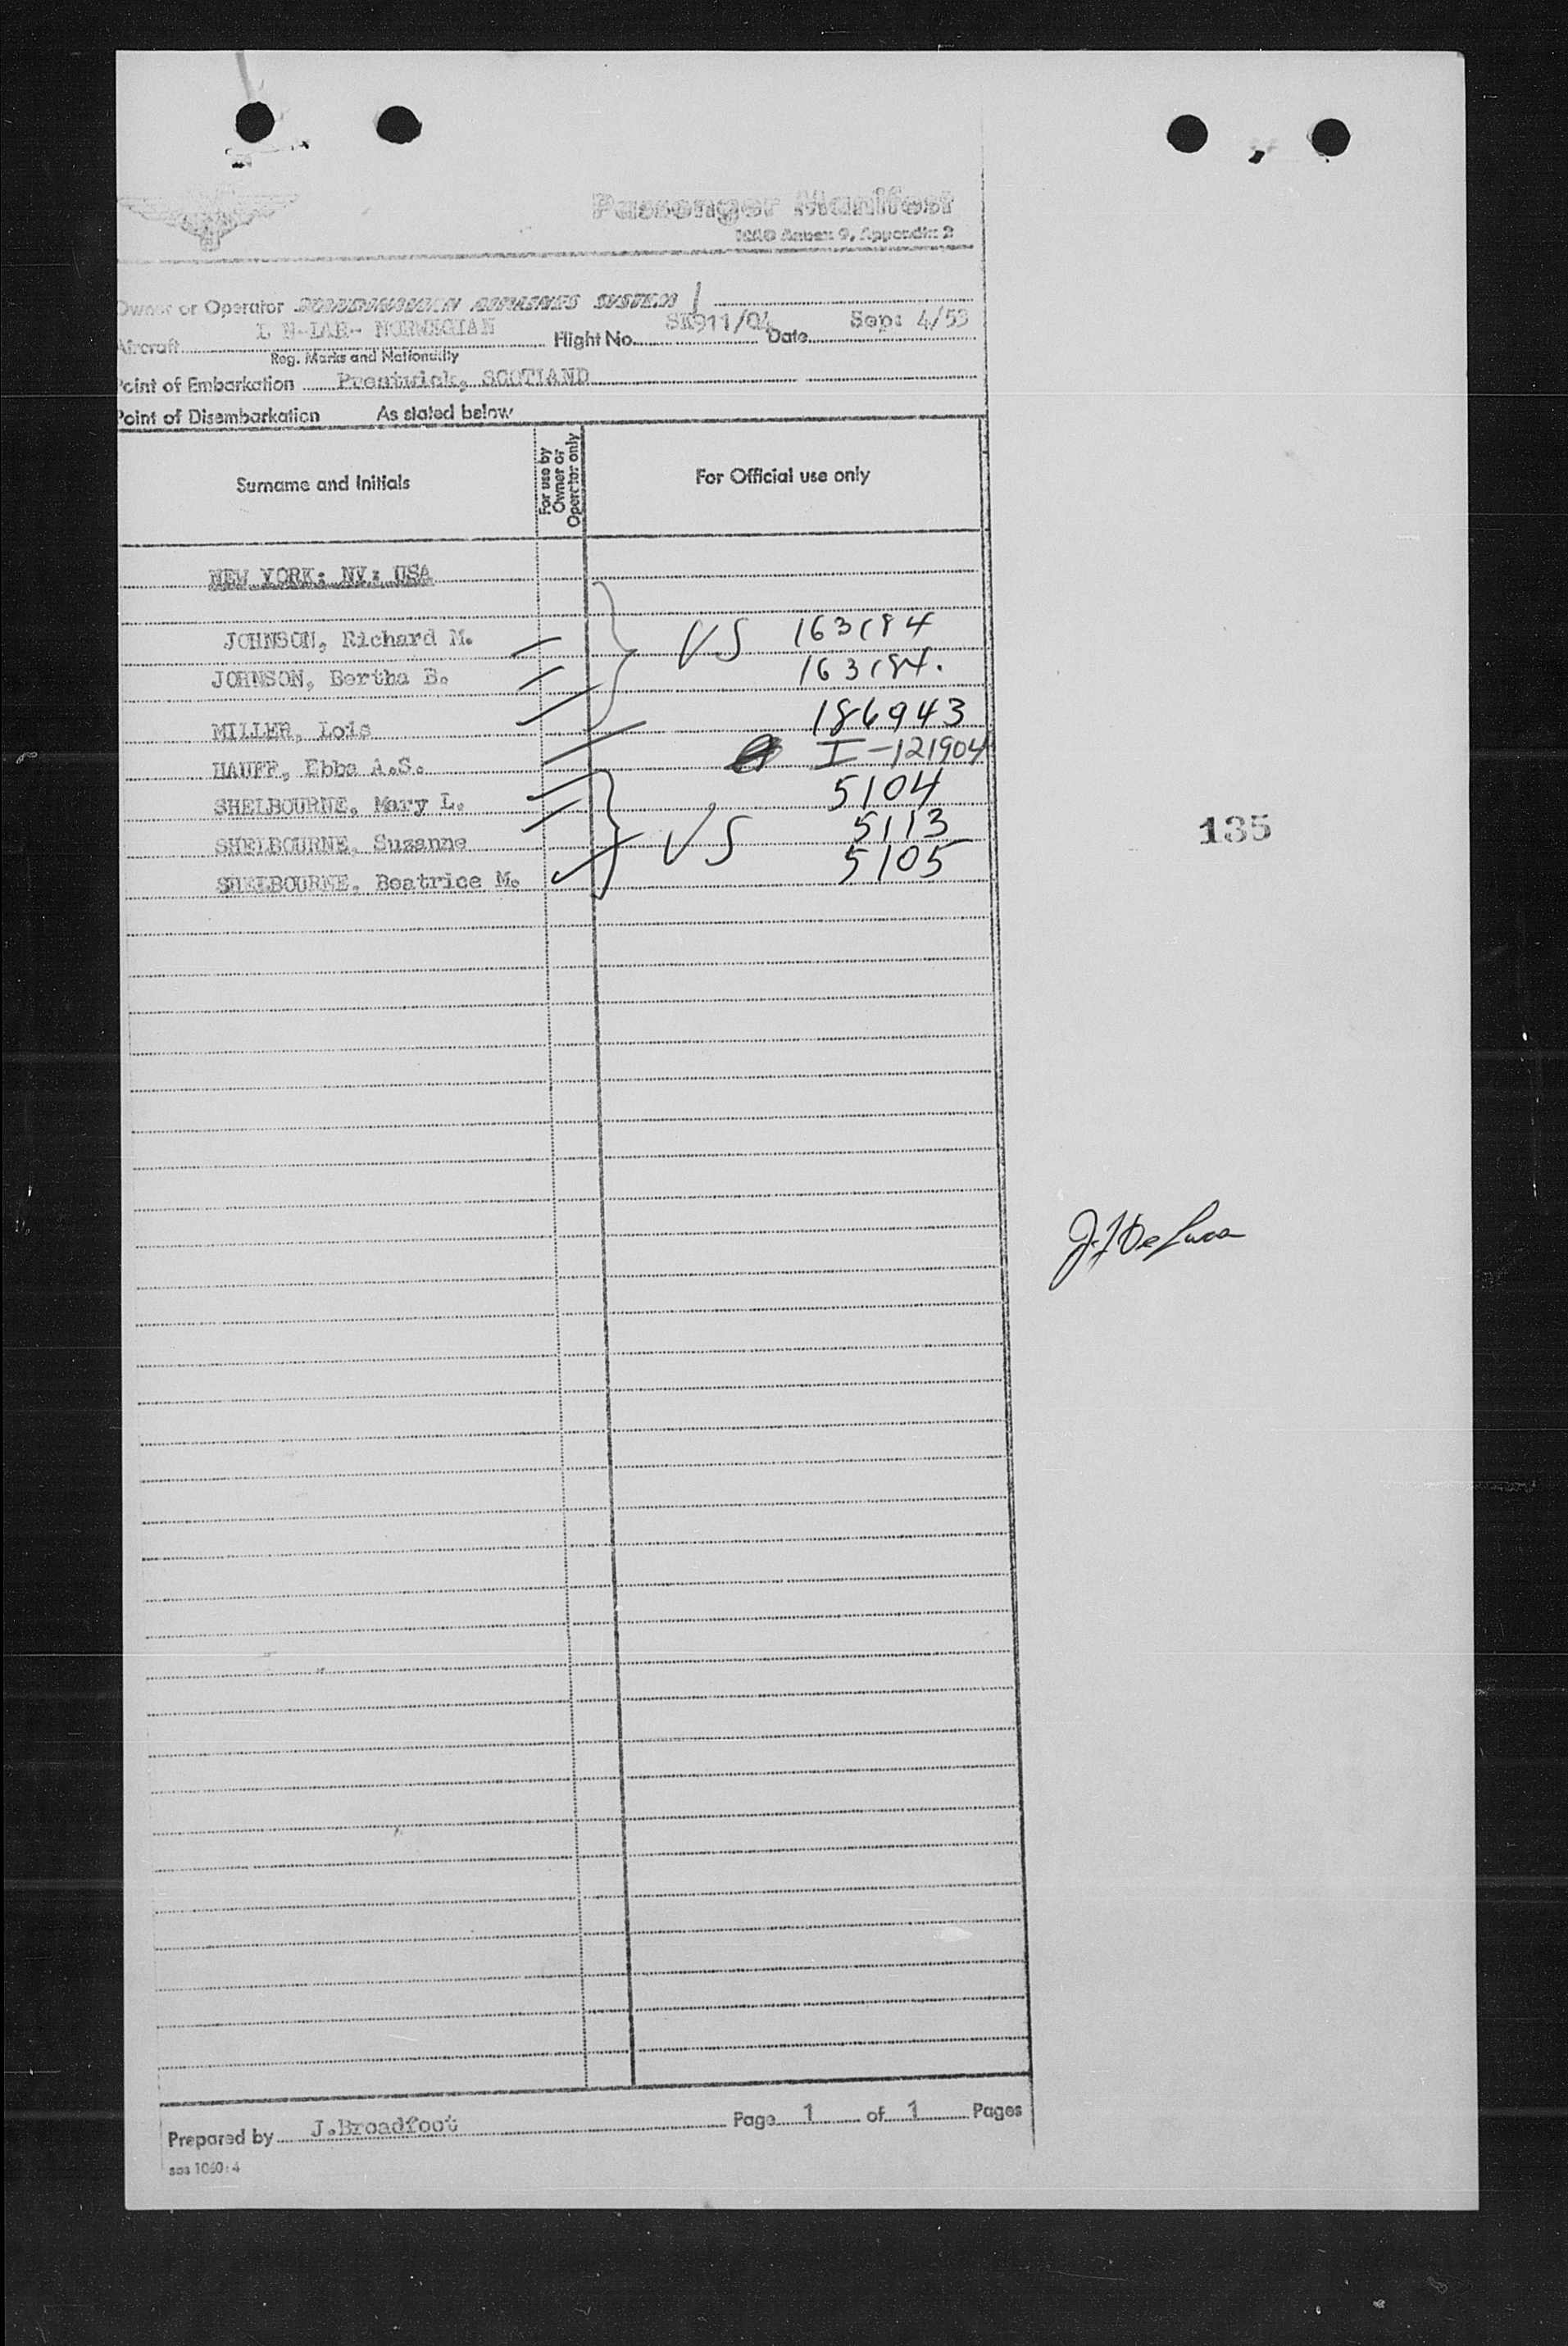 Passenger Manifest
ICAO Annex 9, Appendix 2
Owner or Operator SCANDINAVIAN AIRLINES SYSTEM
Aircraft L N-LAR- NORWEGIAN Flight No. SK911/04 Date Sep: 4/53
Reg. Marks and Nationality
Point of Embarkation Prestwick, SCOTLAND
Point of Disembarkation As stated below
Surname and Initials For use by Owner or Operator only For Official use only
NEW YORK: NY: USA
JOHNSON, Richard M. US 163184
JOHNSON, Bertha B. 163184.
MILLER, Lois 186943
HAUFF, Ebba A.S. I-121904
SHELBOURNE, Mary L. 5104
SHELBOURNE, Suzanne US 5113
SHELBOURNE, Beatrice M. 5105
135
J. J. De Luca
Prepared by J.Broadfoot Page 1 of 1 Pages
sas 1060:4